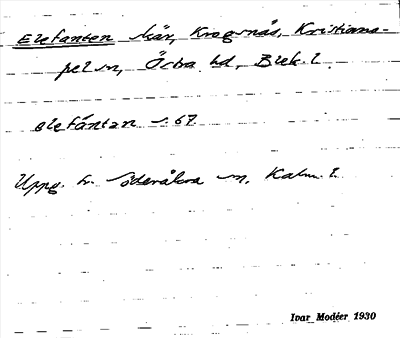 Elefanten skär, Kragsnäs, Kristiana-
pel sn, Östra hd, Blek. l.
elefántan s. 67
Uppg. fr. Söderåkra sn, Kalm. l.
Ivar Modéer 1930